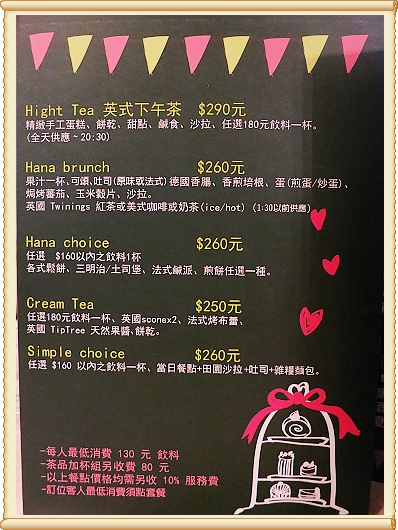 Hight Tea 英式下午茶 $290元
精緻手工蛋糕、餅乾、甜點、鹹食、沙拉、任選180元飲料一杯。
(全天供應~20:30)
Hana brunch $260元
果汁一杯、可頌、吐司(原味或法式)德國香腸、香煎培根、蛋(煎蛋/炒蛋)、
焗烤蕃茄、玉米穀片、沙拉。
英國 Twinings 紅茶或美式咖啡或奶茶(ice/hot) (1:30以前供應)
Hana choice $260元
任選 $160以內之飲料1杯
各式鬆餅、三明治/土司堡、法式鹹派、煎餅任選一種。
Cream Tea $250元
任選180元飲料一杯、英國sconex2、法式烤布蕾、
英國 TipTree 天然果醬、餅乾。
Simple choice $260元
任選 $160 以內之飲料一杯、當日餐點+田園沙拉+吐司+雜糧麵包。
-每人最低消費 130 元 飲料
-茶品加杯組另收費 80 元
-以上餐點價格均需另收 10% 服務費
-訂位客人最低消費須點套餐